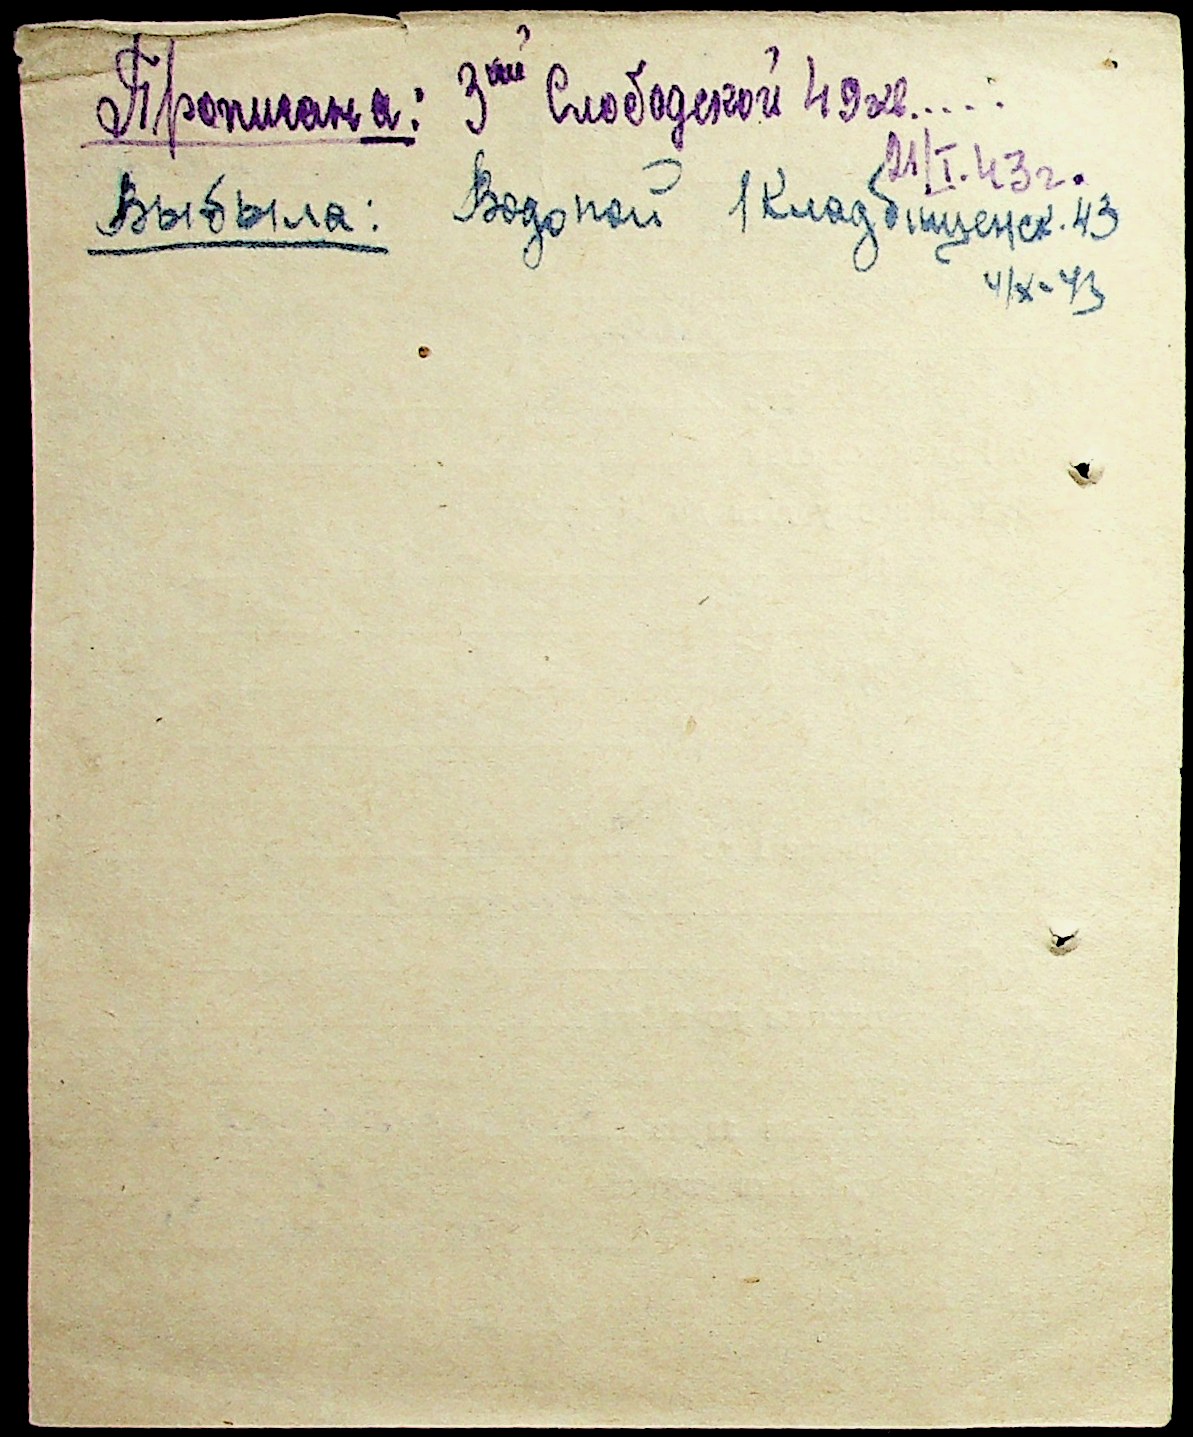 Прописана: 3ий Слободской 49 кв.....
21/I.43г.
Выбыла: Водопой 1 Кладбищенск. 43
4/X-43